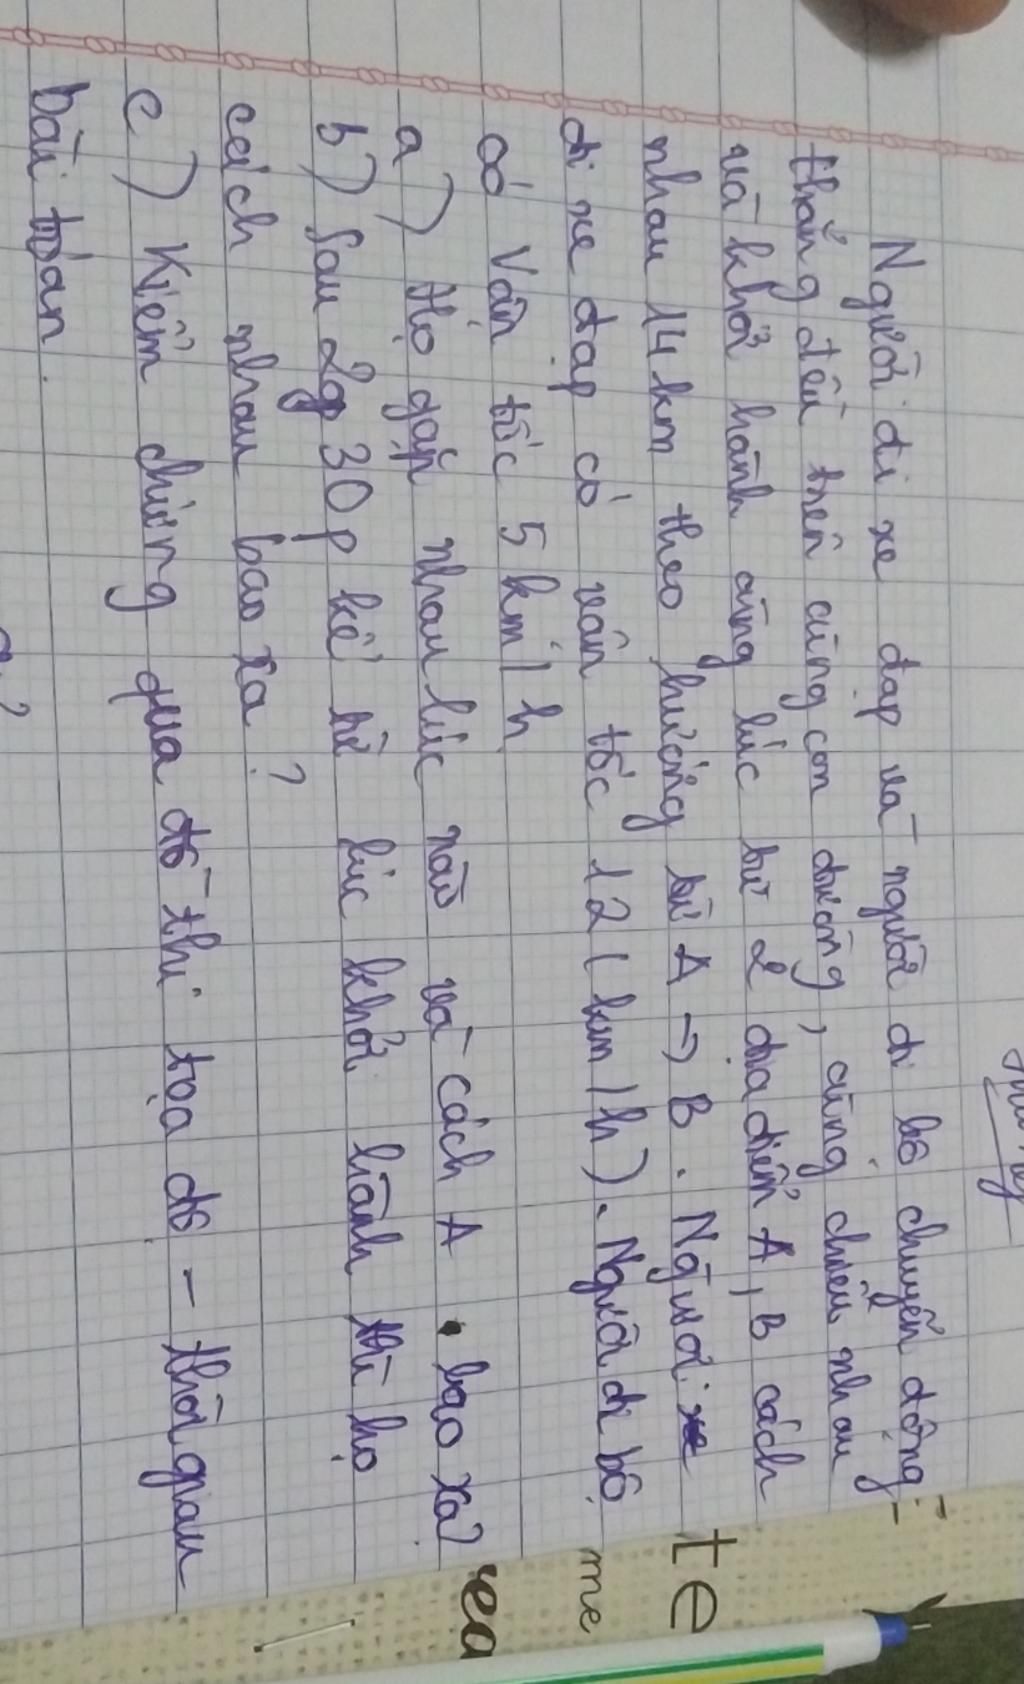 Người đi xe đạp và người đi bộ chuyển động
thẳng đều trên cùng con đường, cùng chiều nhau
và khởi hành cùng lúc từ 2 địa điểm A, B cách
nhau 14 km theo hướng từ A → B. Người xe
đi xe đạp có vân tốc 12 (km/h). Người đi bộ
có Vận tốc 5 km/h
a) Họ gặp nhau lúc nào và cách A bao xa?
b) Sau 2g 30p kể từ lúc khởi hành thì họ
cách nhau bao xa?
c) Kiểm chứng qua đồ thị tọa độ - thời gian
bài toán.
te
me